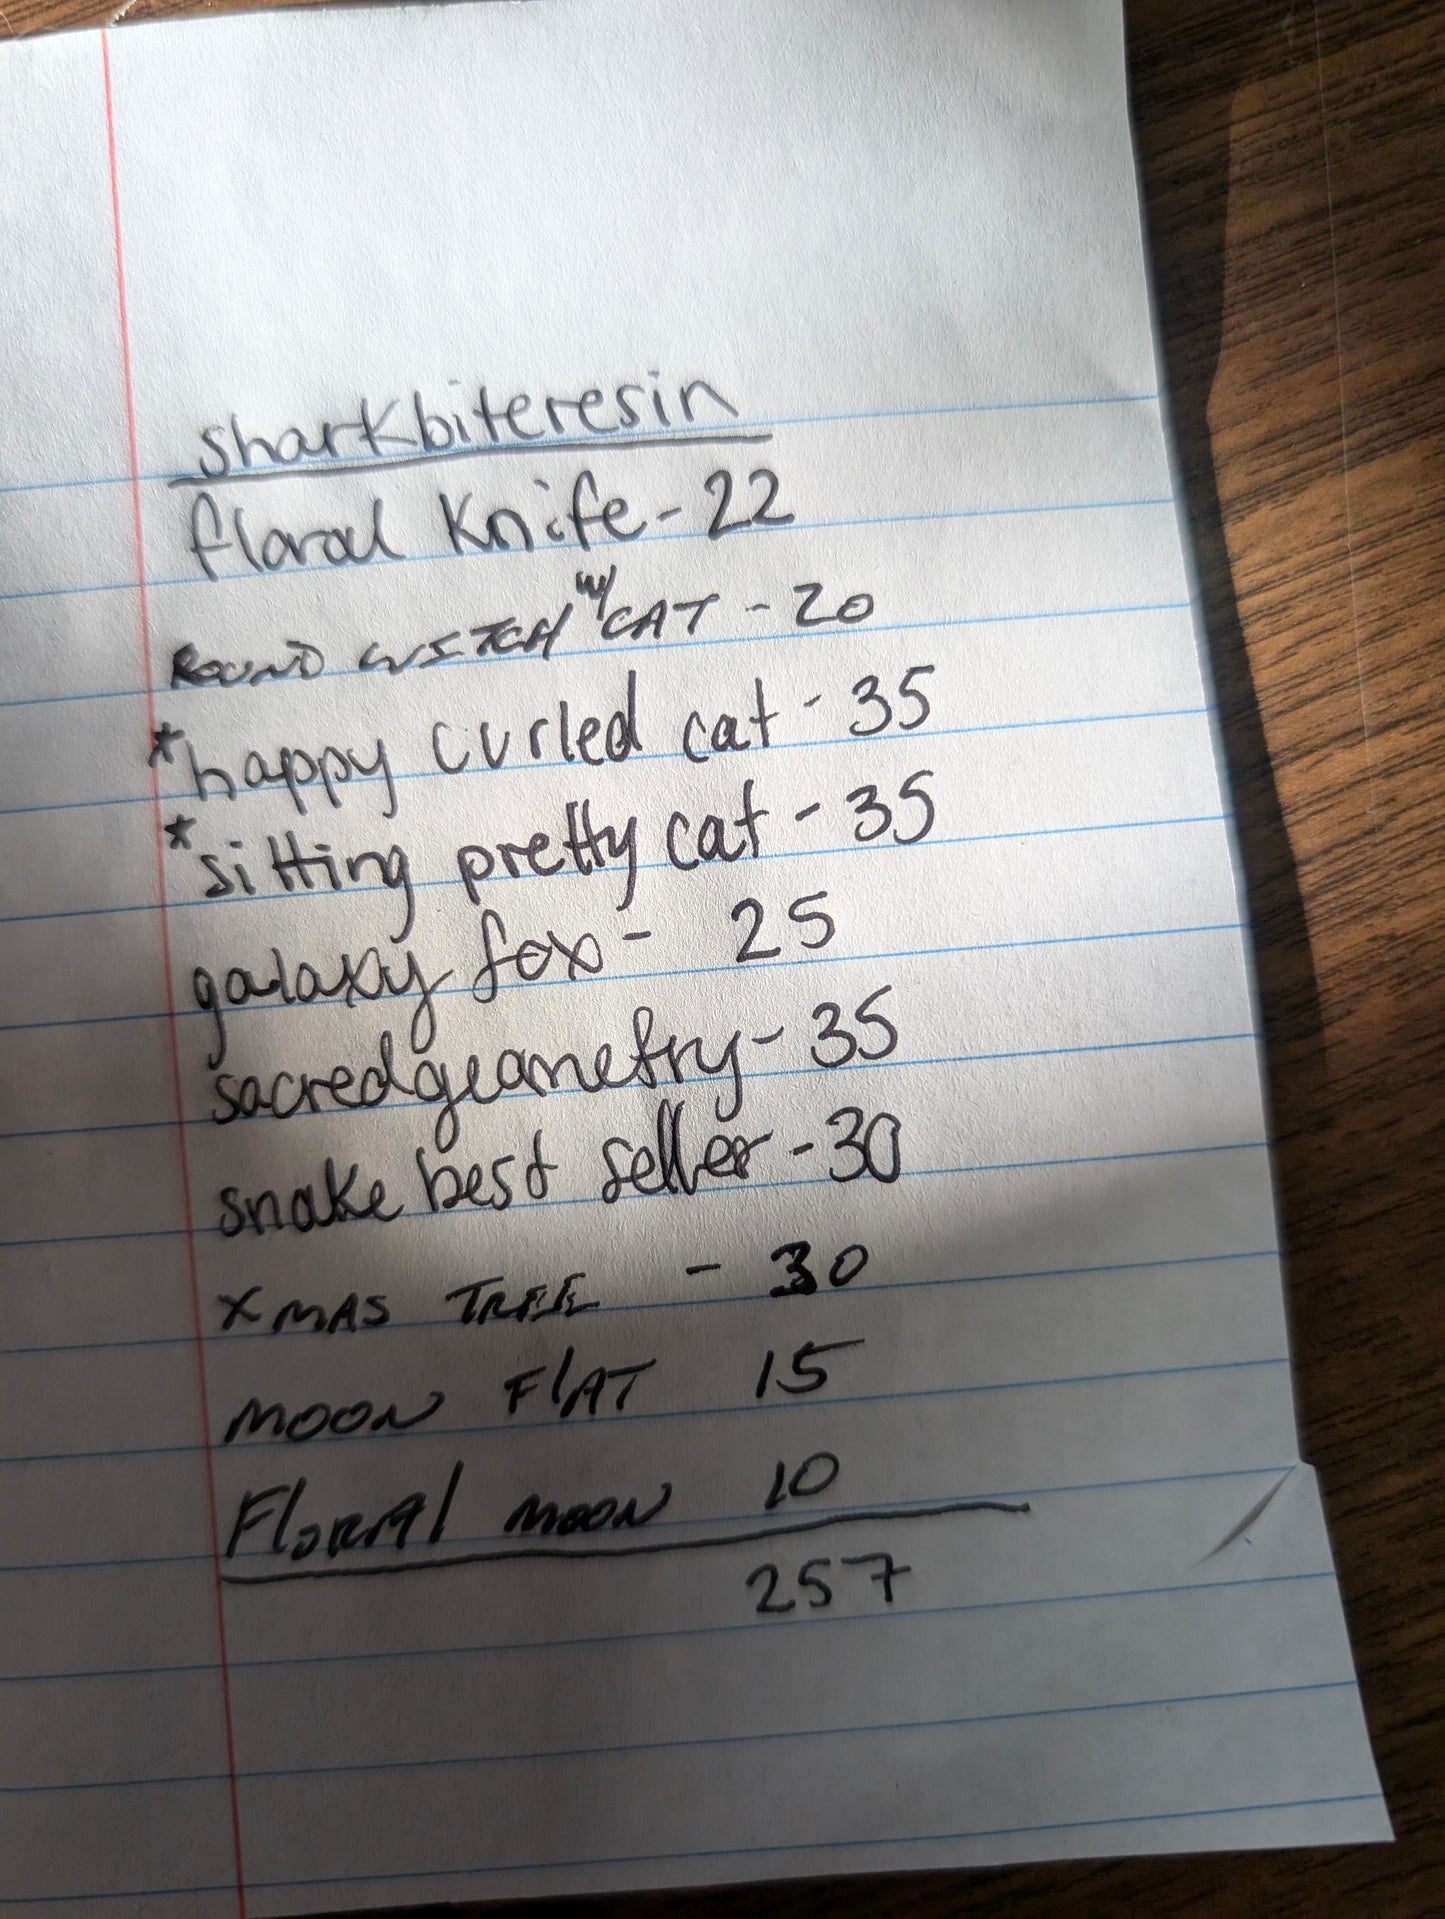 sharkbiteresin
floral Knife - 22
ROUND WITCH w/ CAT - 20
*happy curled cat - 35
*sitting pretty cat - 35
galaxy fox - 25
sacredgeometry - 35
snake best seller - 30
XMAS TREE - 30
MOON FlAT 15
FloRAl MOON 10
257